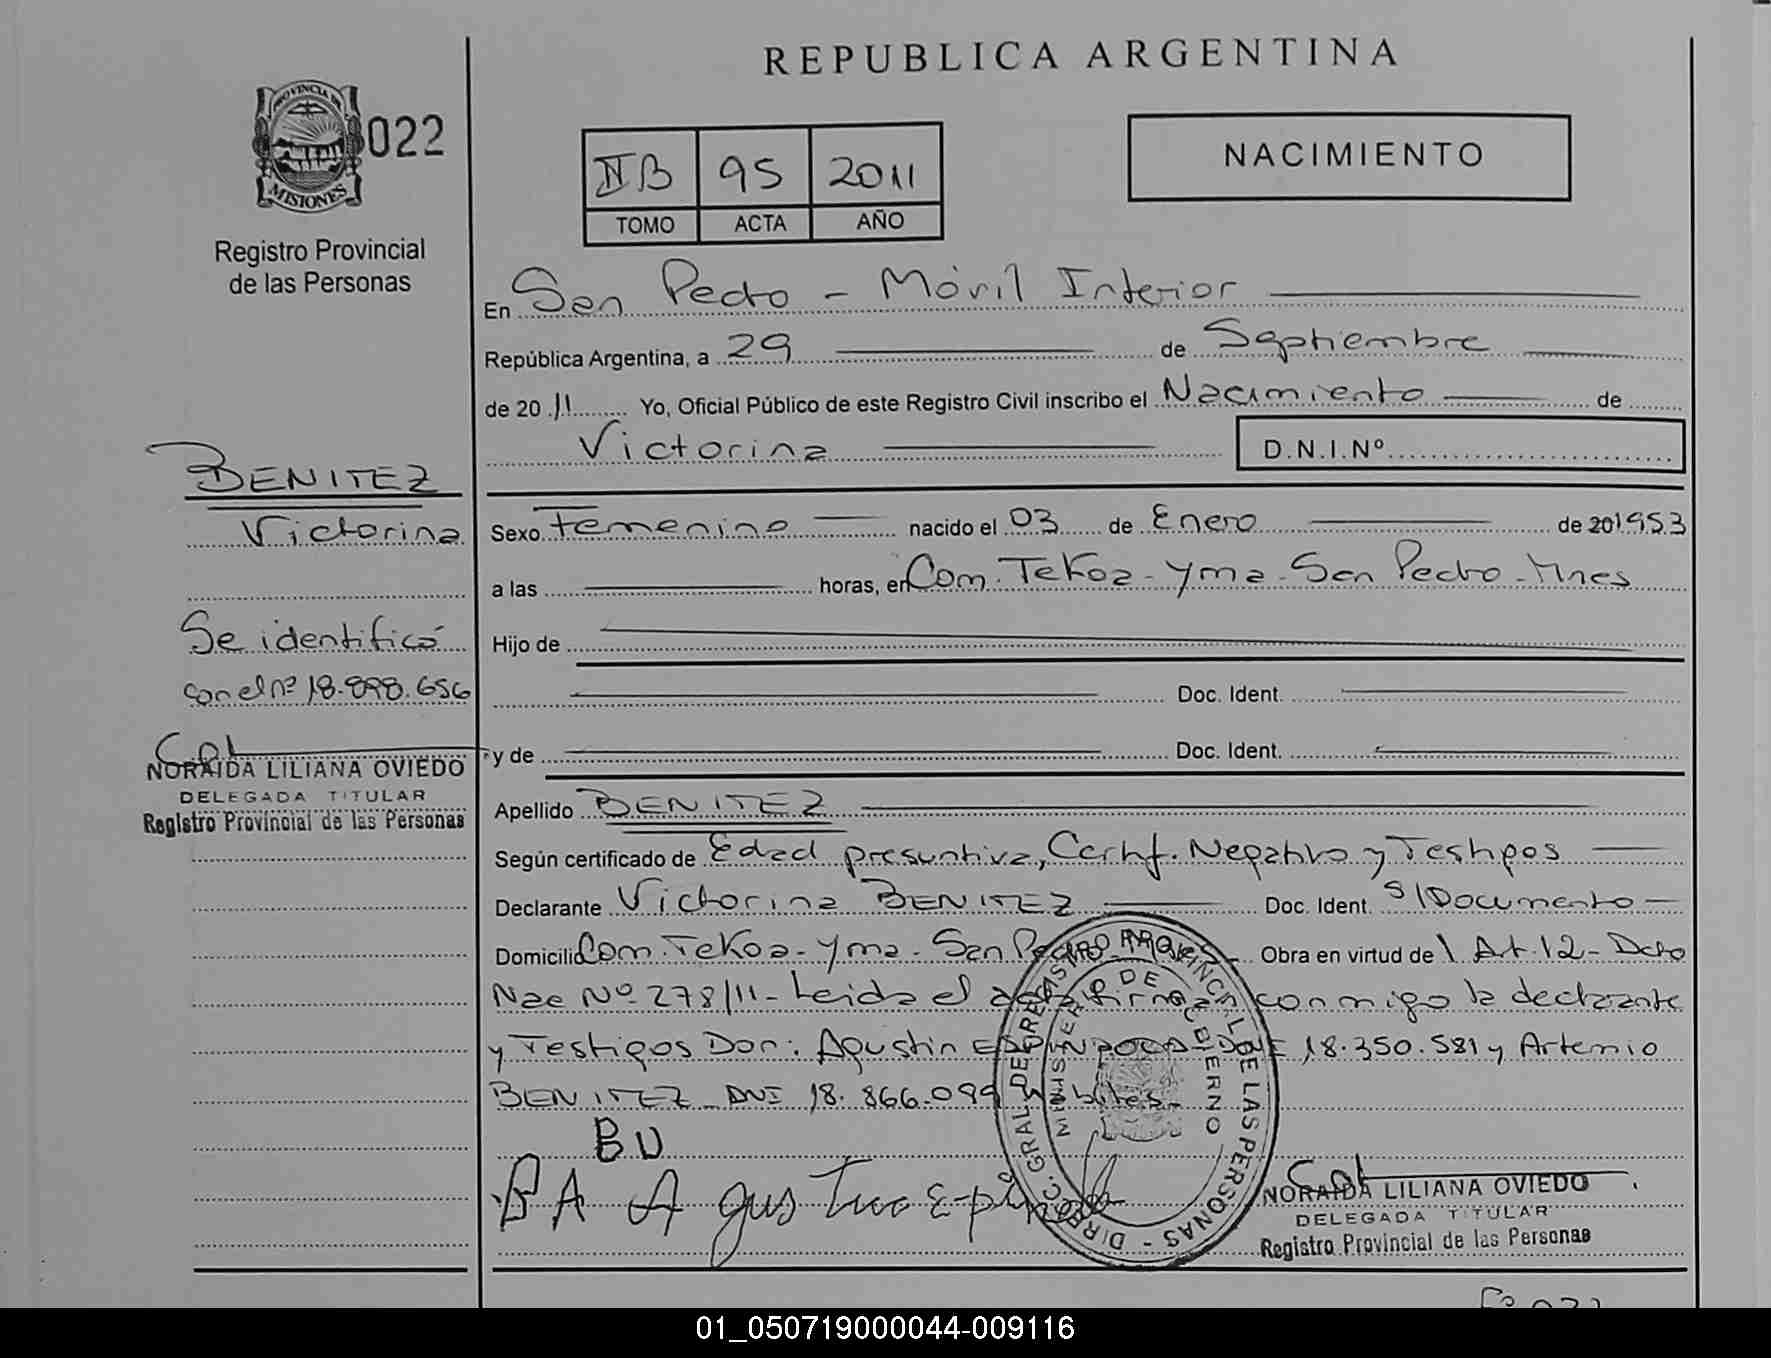 REPUBLICA ARGENTINA
PROVINCIA DE
MISIONES
022
Registro Provincial
de las Personas
IIB 95 2011
TOMO ACTA AÑO
NACIMIENTO
En San Pedro - Móvil Interior
República Argentina, a 29 de Septiembre
de 20 11 Yo, Oficial Público de este Registro Civil inscribo el Nacimiento de
Victorina D.N.I.Nº
BENITEZ
Victorina
Se identificó
con el nº 18.898.656
NORAIDA LILIANA OVIEDO
DELEGADA TITULAR
Registro Provincial de las Personas
Sexo Femenino nacido el 03 de Enero de 201953
a las horas, en Com. Tekoa-yma-San Pedro-Mnes
Hijo de
Doc. Ident.
y de Doc. Ident.
Apellido BENITEZ
Según certificado de Edad presuntiva, Certif. Negativo y Testigos
Declarante Victorina BENITEZ Doc. Ident. S/Documento
Domicilio Com. Tekoa-yma-San Pedro Obra en virtud de Art. 12-Dcto
Nac Nº 278/11-Leida el acta firma conmigo la declarante
y Testigos Don: Agustin ESPINDOLA-DNI 18.350.581 y Artemio
BENITEZ-DNI 18.866.099 habiles-
BU
BA Agustino Espindola
DIREC. GRAL. DE REGISTRO PROVINCIAL DE LAS PERSONAS -
MINISTERIO DE GOBIERNO
NORAIDA LILIANA OVIEDO
DELEGADA TITULAR
Registro Provincial de las Personas
01_050719000044-009116